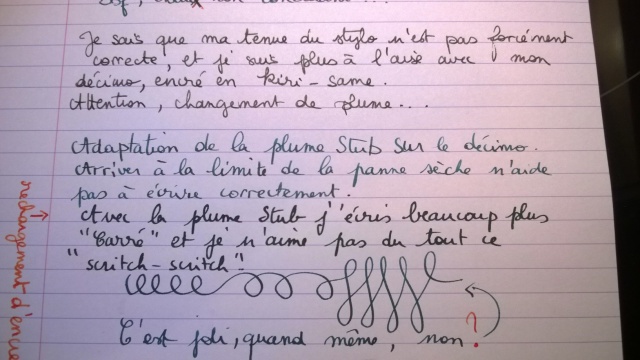 Je sais que ma tenue du stylo n'est pas forcément
correcte, et je suis plus à l'aise avec mon
décimo, encré en kiri-same.
Attention, changement de plume...
Adaptation de la plume Stub sur le décimo.
Arriver à la limite de la panne sèche n'aide
pas à écrire correctement.
Avec la plume Stub j'écris beaucoup plus
"Carré" et je n'aime pas du tout ce
"scritch-scritch".
C'est joli, quand même, non ?
rechangement d'encre